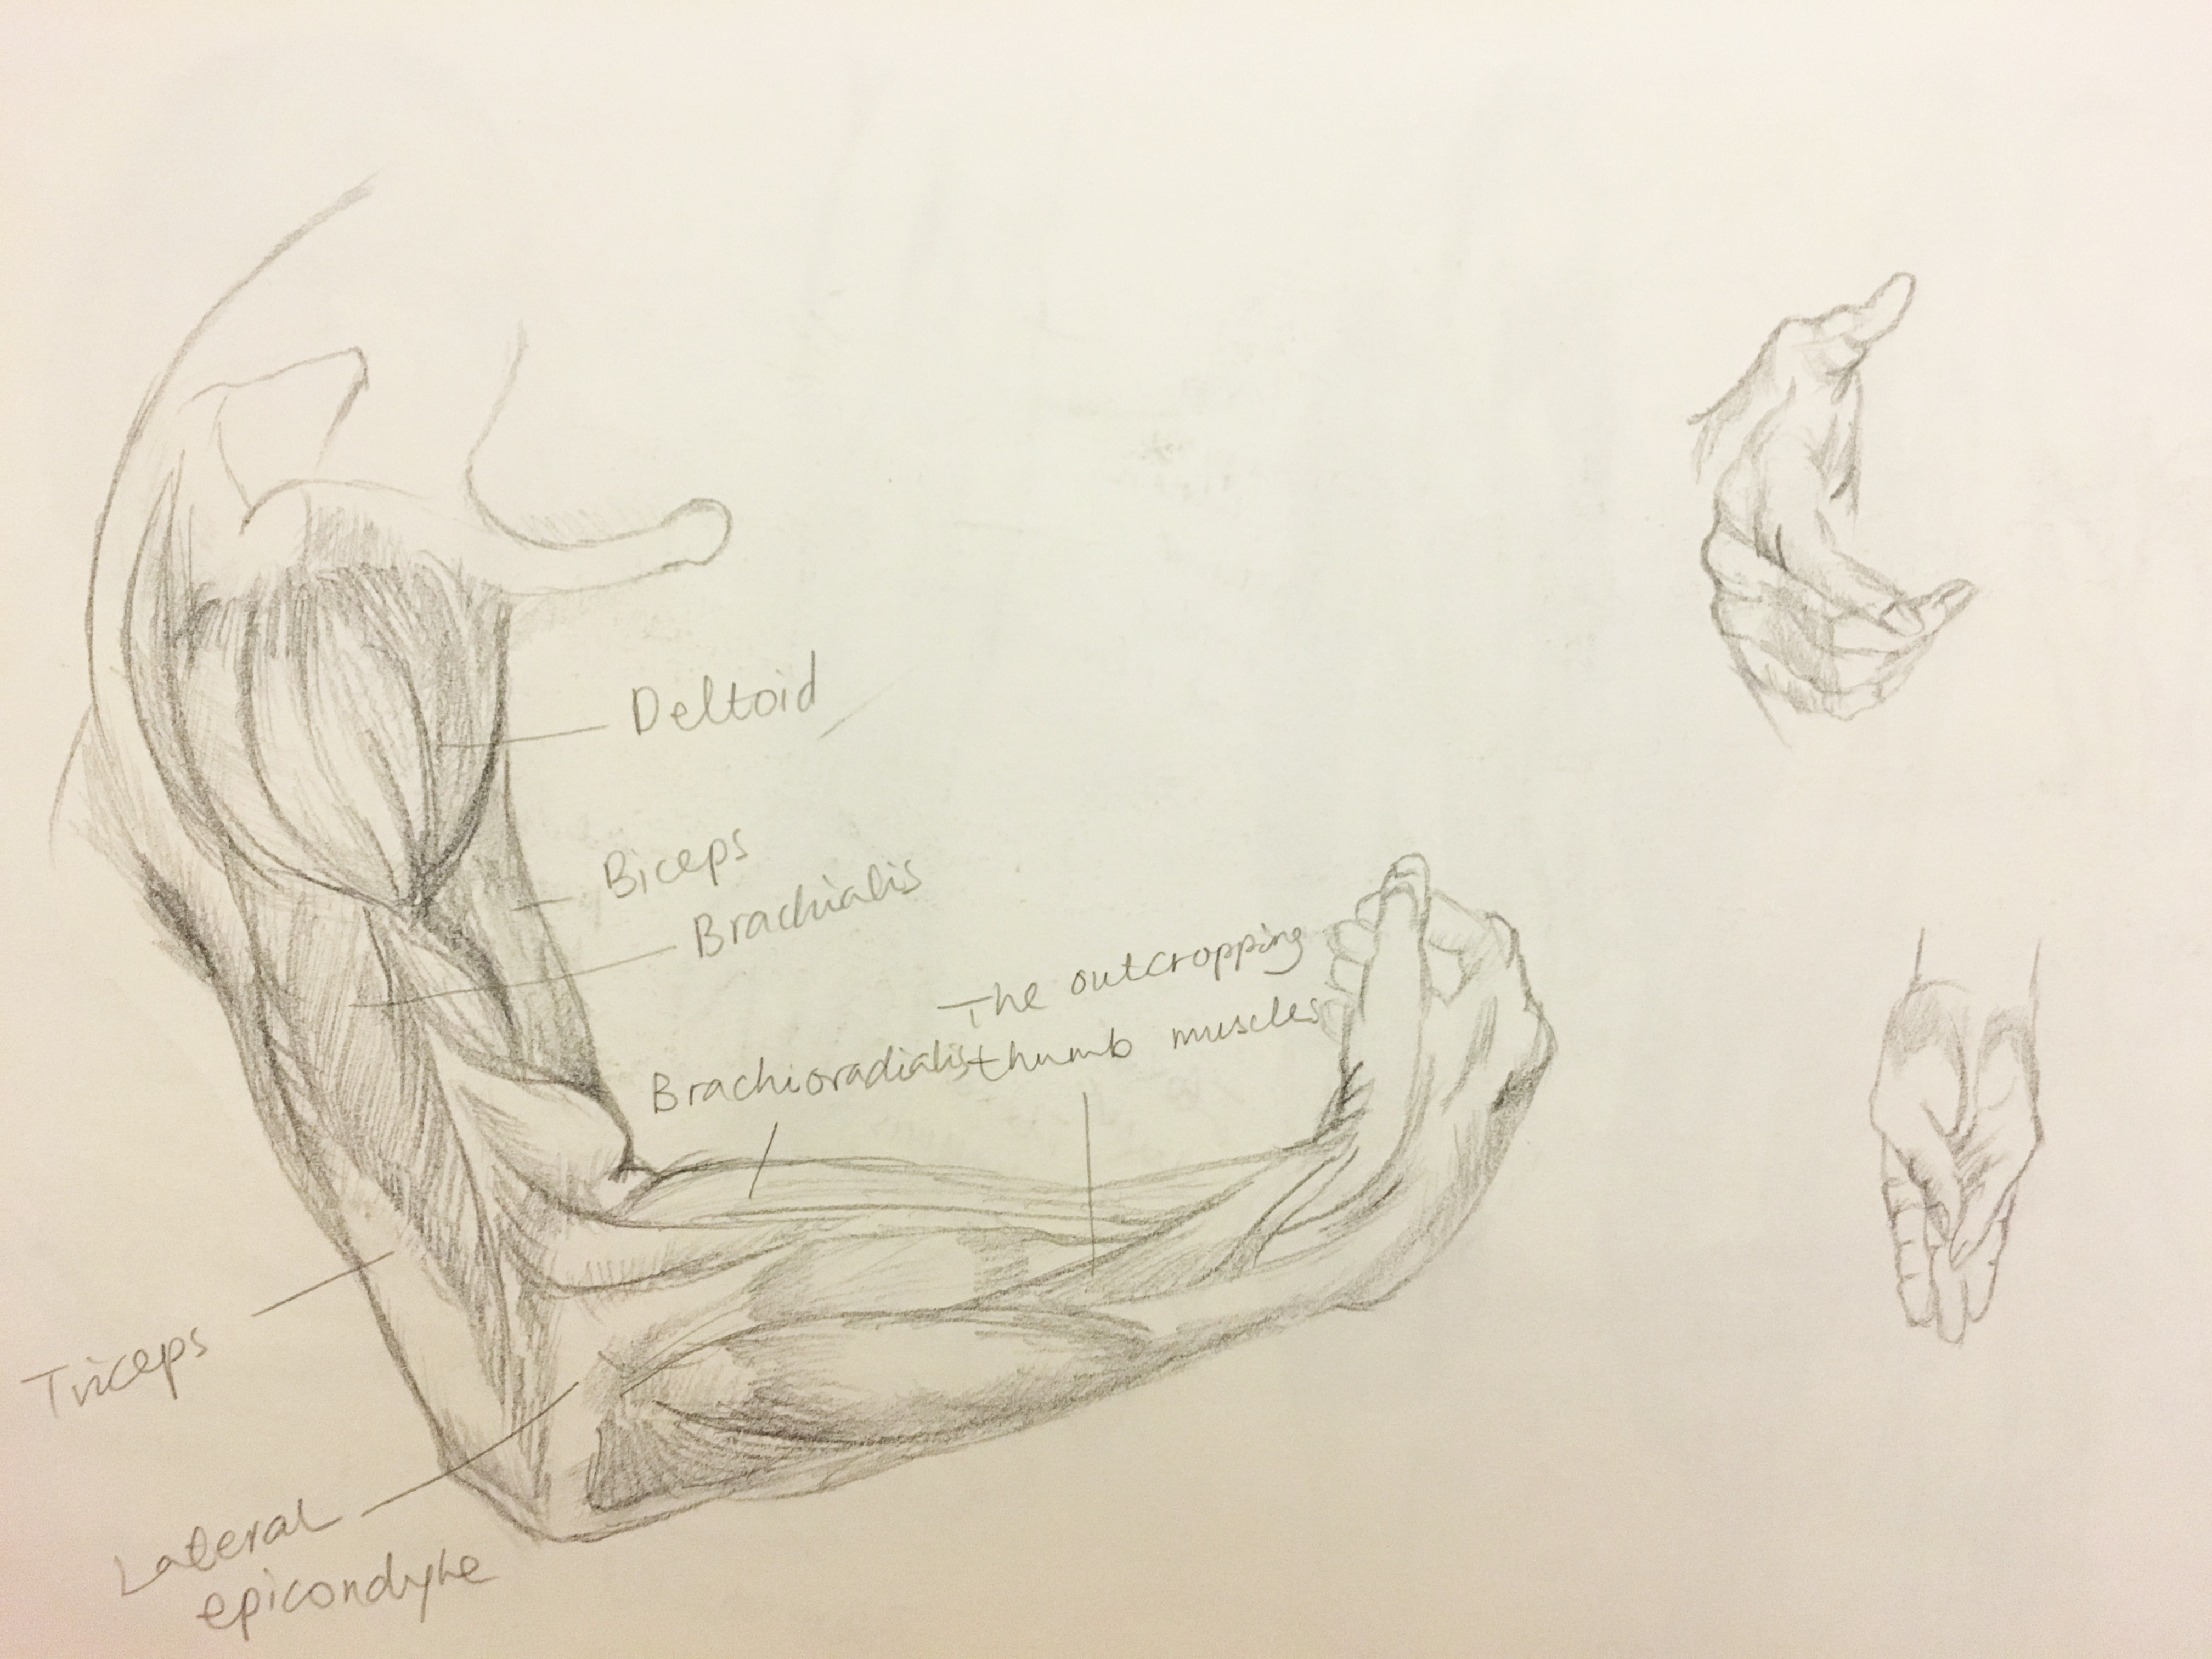 Deltoid
Biceps
Brachialis
The outcropping
thumb muscles
Brachioradialis
Triceps
Lateral
epicondyle